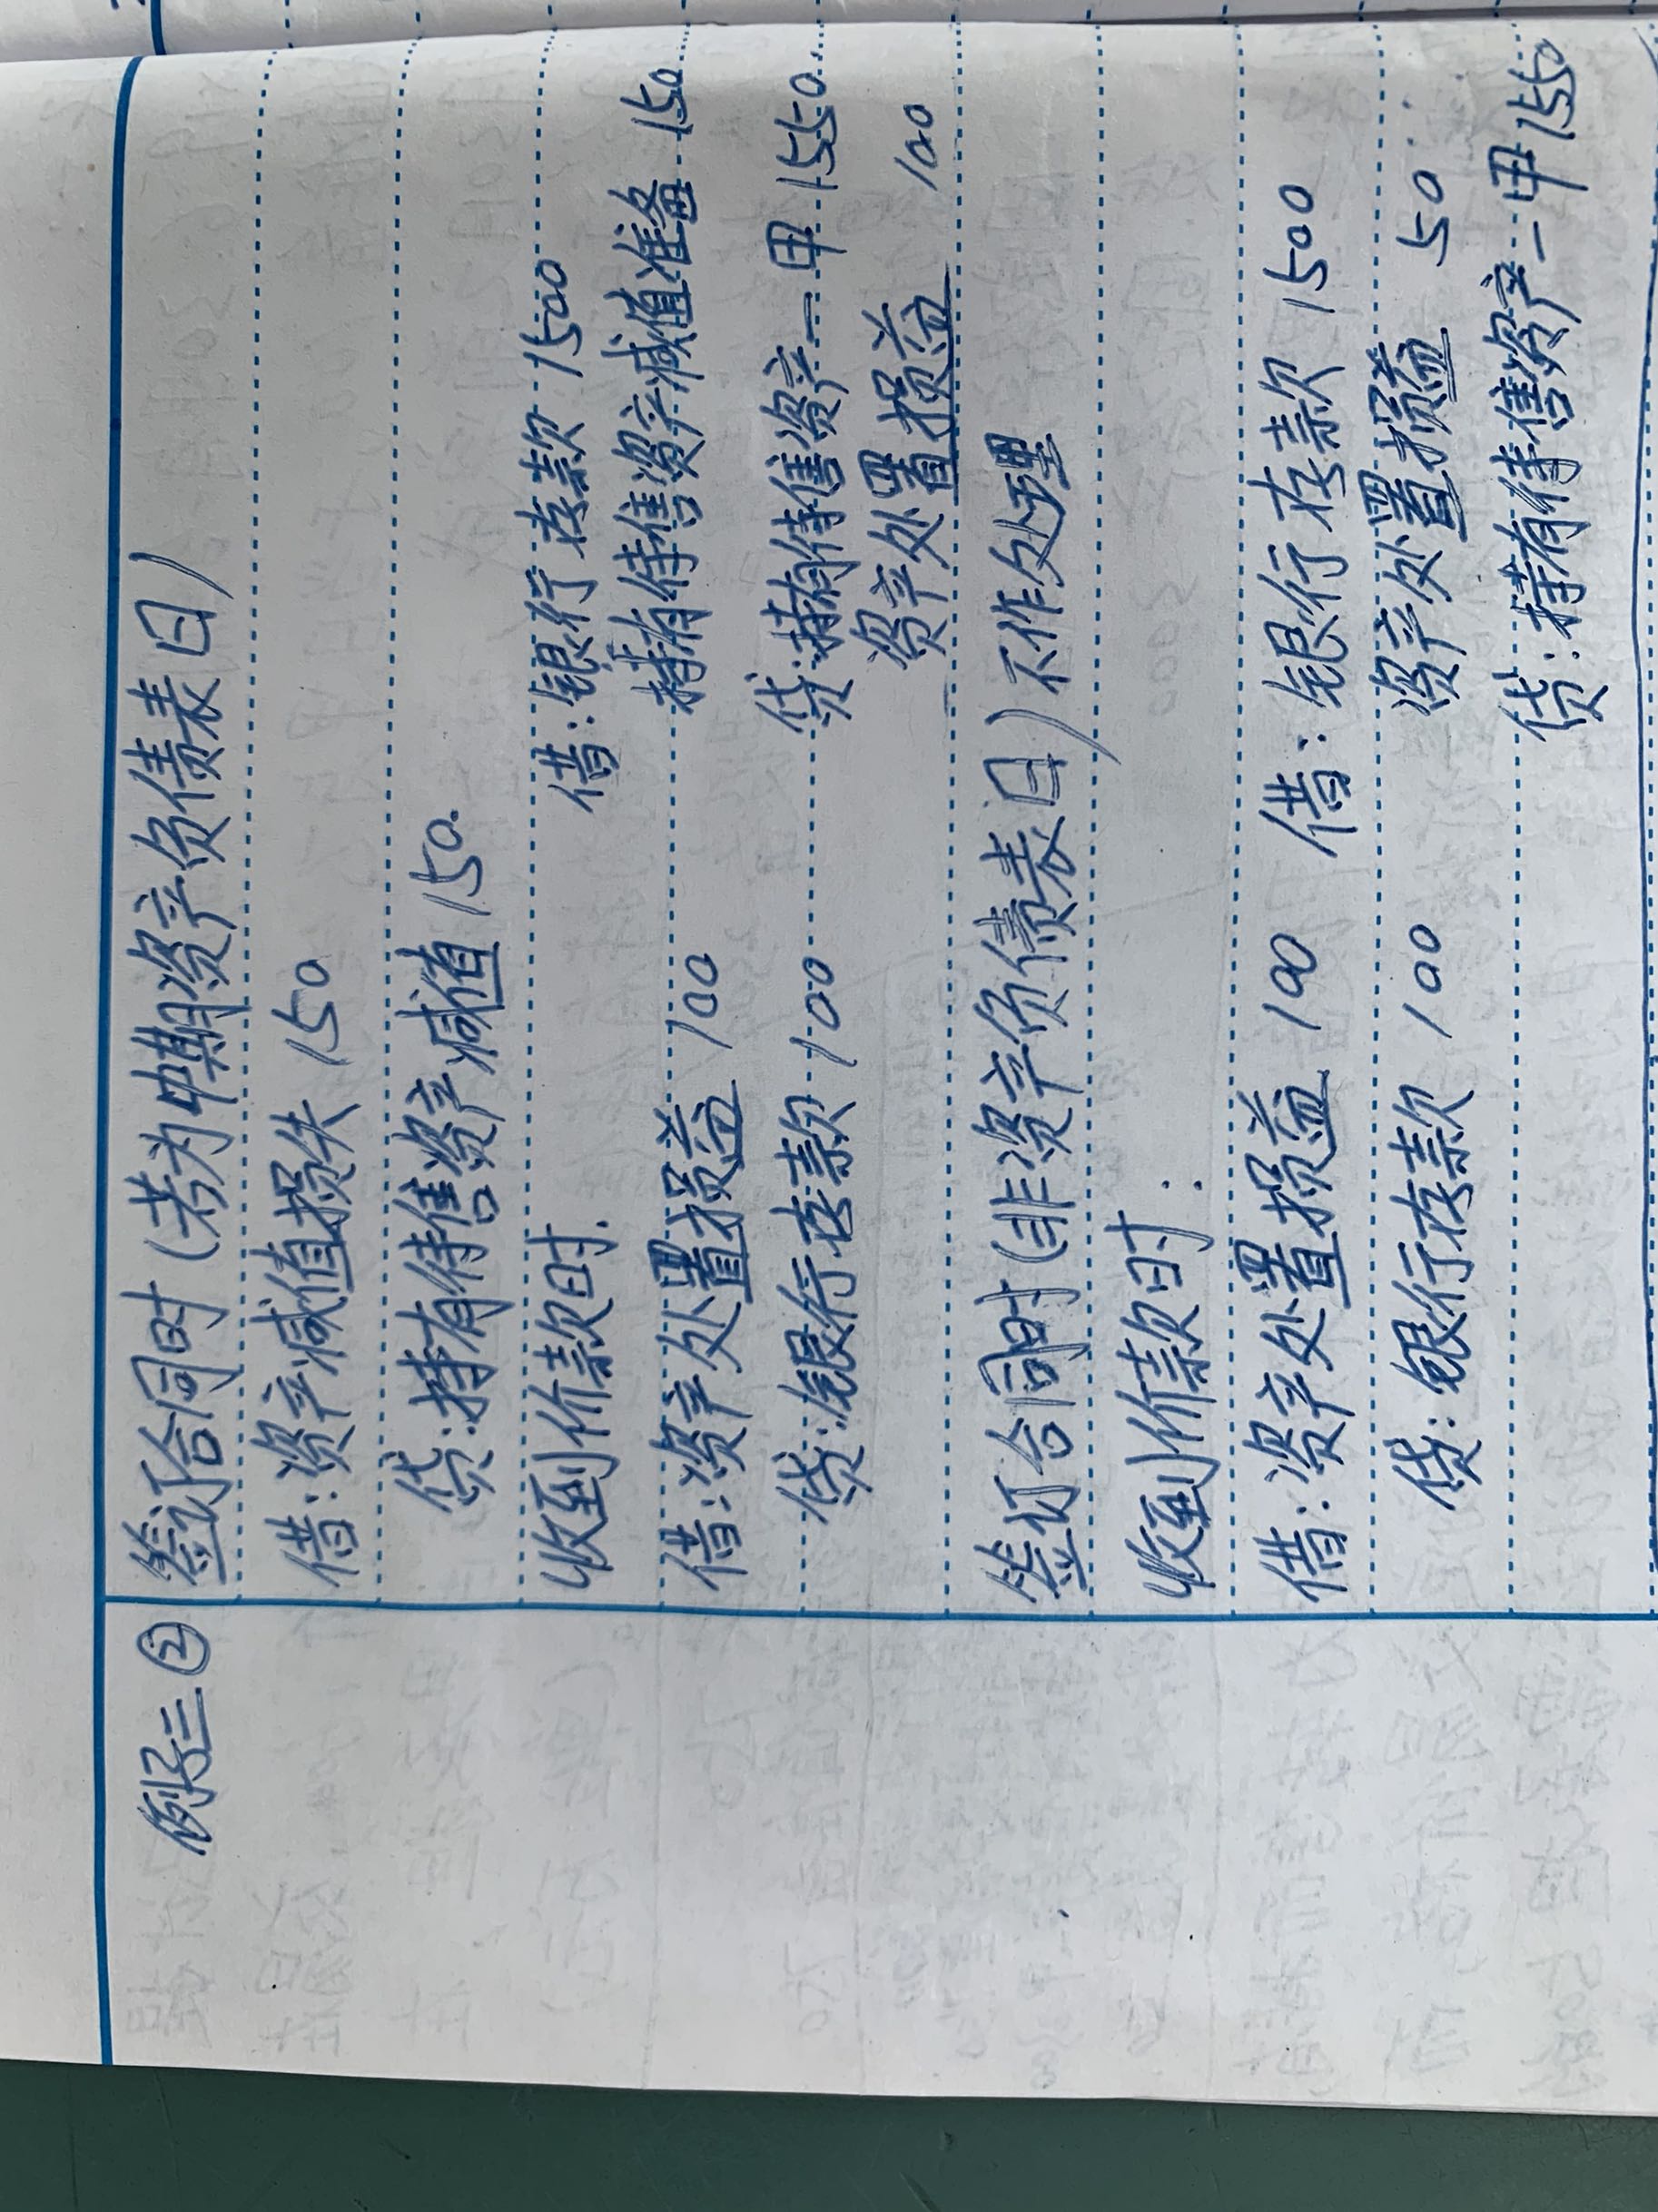 例子三 ②
签订合同时（若为中期资产负债表日）
借：资产减值损失 150
贷：持有待售资产减值 150.
收到价款时.
借：资产处置损益 100
贷：银行存款 100
借：银行存款 1500
持有待售资产减值准备 150
贷：持有待售资产—甲 1550
资产处置损益 100
签订合同时（非资产负债表日）不作处理
收到价款时：
借：资产处置损益 100
贷：银行存款 100
借：银行存款 1500
资产处置损益 50
贷：持有待售资产—甲 1550